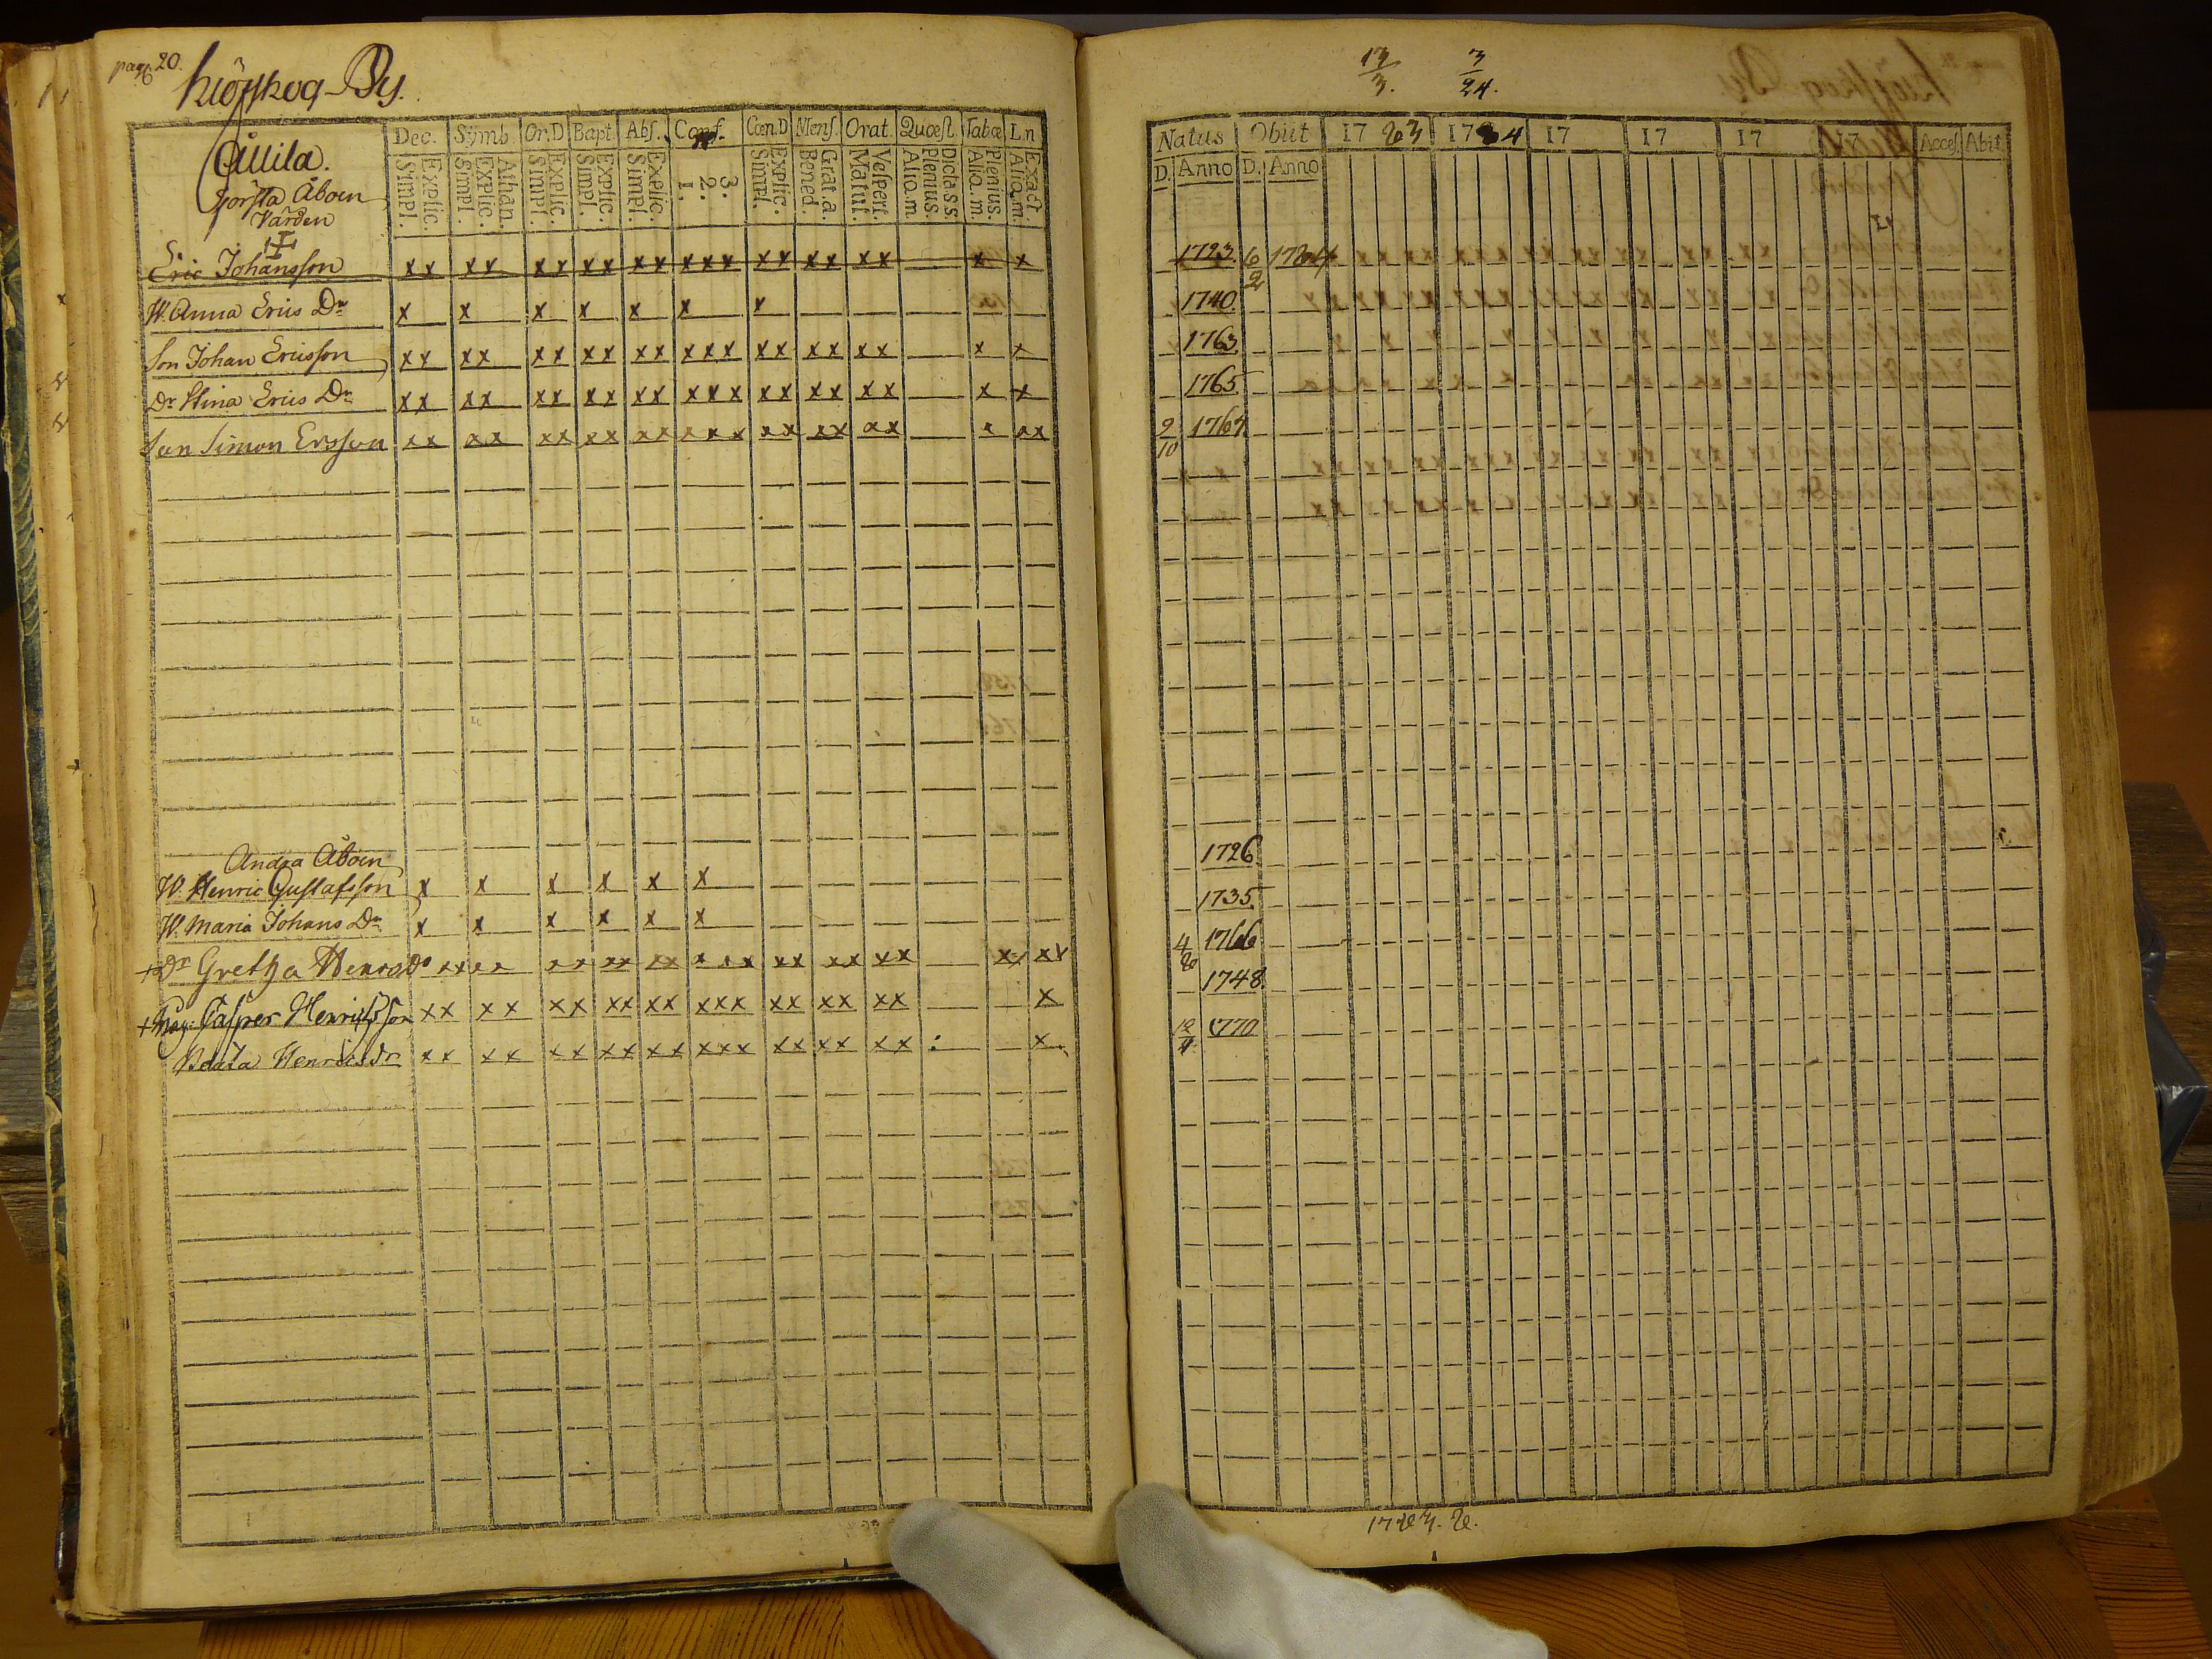 pag. 20.
Kiöpskog-By.
Dec. Symb. Or.D Bapt. Abs. Conf. Cœn.D Mens. Orat. Quæst. Tabæ L.n
Attila.
Första Åboen
Värden
Explic. Simpl. Athan. Explic. Simpl. Explic. Simpl. Explic. Simpl. Explic. Simpl. 3. 2. 1. Explic. Simpl. Grat.a. Bened. Vespert. Matut. Dicta s.s. Plenius. Aliq.m. Plenius. Aliq.m. Exact. Aliq.m.
Eric Johansson xx xx xx xx xx xxx xx xx xx x x
W. Anna Erics Dr x x x x x x x
Son Johan Ericsson xx xx xx xx xx xxx xx xx xx x x
Dr Stina Erics Dr xx xx xx xx xx xxx xx xx xx x x
Son Simon Ersson xx xx xx xx xx xxx xx xx xx x xx
Andra Åboen
W. Henric Gustafsson x x x x x x
W. Maria Johans Dr x x x x x x
+ Dr Gretha Henrics Dr xx xx xx xx xx xxx xx xx xx xx xx
+ Måg: Casper Henricsson xx xx xx xx xx xxx xx xx xx x
Beata Henricsdr xx xx xx xx xx xxx xx xx xx x
13/3. 3/24.
Natus Obiit 1783 1784 17 17 17 17 Acces. Abit.
D. Anno D. Anno
1723. 6/2 1784
1740.
1763.
1765.
2/10 1767
1726
1735.
4/20 1766
1748.
12/4 1770